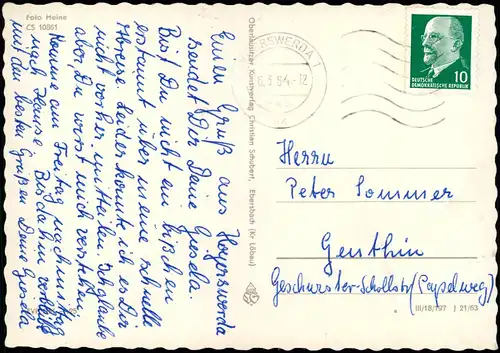 Foto Heine
CS 10861
Einen Gruß aus Hoyerswerda
sendet Dir Deine Gisela.
Bist Du nicht ein bischen
erstaunt über meine schnelle
Abreise. Leider konnte ich es Dir
nicht vorher mitteilen. Ich glaube
aber, Du wirst mich verstehen.
Komme am Freitag nachmittag
nach Hause. Bis dahin verbleibe
mit den besten Grüßen Deine Gisela
Oberlausitzer Kunstverlag Christian Schubert, Ebersbach (Kr. Löbau)
HOYERSWERDA 1
6.3.64.-12
DEUTSCHE
DEMOKRATISCHE REPUBLIK
10
Herrn
Peter Sommer
Genthin
Geschwister-Schollstr. (Pappelweg)
III/18/197 J 21/63